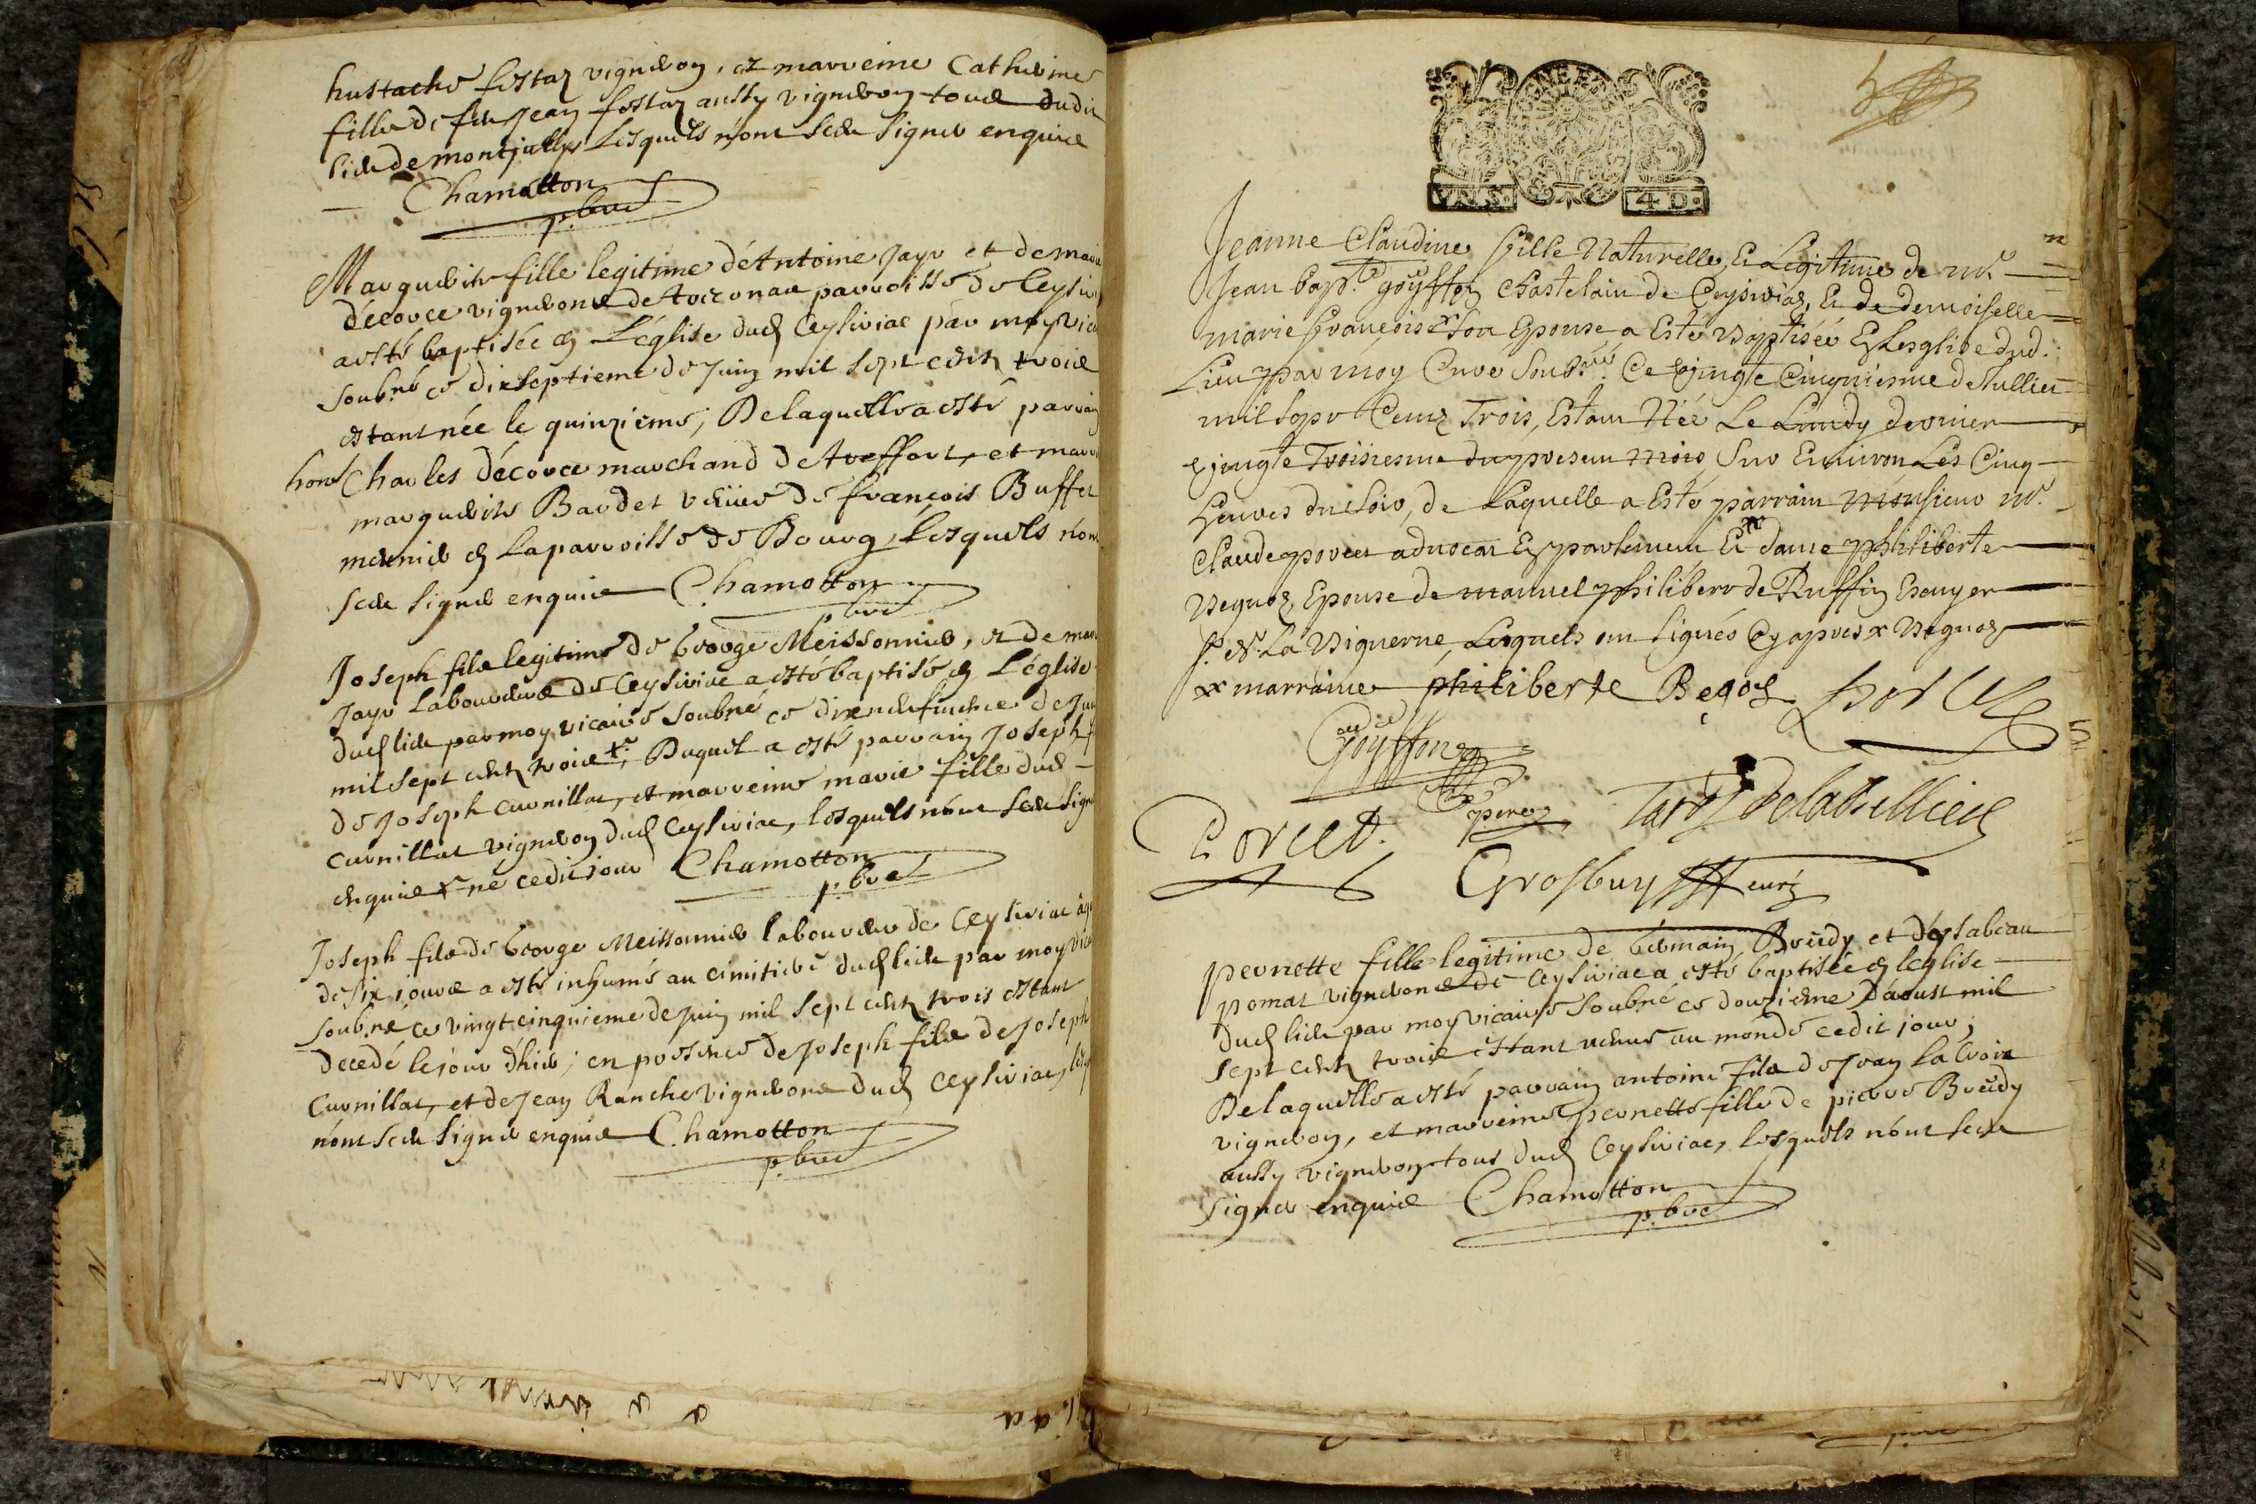 hustache fostaz vigneron, et marreine Catherine
fille de feu Jean fostaz aussy vigneron tous dudit
lieu de montjully Lesquels n'ont sceu signer enquis
Chamotton
p.bre
Marguerite fille legitime d'Antoine Jayr et de marie
décorce vignerons de parroisse de Ceysiria
a esté baptisée en L'église dud Ceysiriac par moy vica
soub.né ce dixseptieme de Juin mil sept cents trois
estant née le quinzieme; De laquelle a esté parrain
hon. Charles décorce marchand de Treffort, et marr
marguerite Bardet veuve de françois Buffet
meunier en La parroisse de Bourg, Lesquels n'ont
sceu signer enquis Chamotton
p.bre
Joseph fils legitime de George Meissonnier, et de mar
Jayr laboureurs de Ceysiriac a esté baptisé en L'église
dud lieu par moy vicaire soubné ce dixneufvieme de Jui
mil sept cents trois x, Duquel a esté parrain Joseph f
de Joseph curnillat, et marreine marie fille dud
curnillat vigneron dud Ceysiriac, lesquels n'ont sceu sign
enquis x né cedit jour Chamotton
p.bre
Joseph fils de George Meissonnier laboureur de Ceysiriac âg
de six jours a esté inhumé au cimitiere dud lieu par moy vica
soub.né ce vingtcinquieme de Juin mil sept cents trois estant
decedé le jour d'hier; en presence de Joseph fils de Joseph
Curnillat, et de Jean Ranche vignerons dud Ceysiriac, lesq
n'ont sceu signer enquis Chamotton
p.bre
4 D.
Jeanne Claudine fille Naturelle, Et Légitime de mr
Jean bapt. goyffon Chastelain de Ceysiria, Et de demoiselle
marie françoise son Epouse a Esté Baptiséé En Lesglise dud.
Lieu par moy Curé Soub.né Ce vingte Cinquiesme de Jullier
mil Sept Centz Trois, Estant Néé Le Lundy dernier
vingte Troisiesme du present mois Sur Environ Les Cinq
heures du Soir, de Laquelle a Esté parrain Monsieur mr.
Claude porcet advocat En parlement Et x dame philiberte
Begoz, Epouse de manuel philibert de Ruffin Escuyer
sr. de La Viguerne, Lesquels ont signés Cy apres x Begoz
x marraine philiberte Begos porcet
Goyffon
pere
Porcet.
Grosbuy curé
pernette fille legitime de Germain Brudy et d'ysabeau
pomat vignerons de Ceysiriac a esté baptisée en leglise
dud lieu par moy vicaire soubné ce douzieme d'aoust mil
sept cents trois estant venue au monde cedit jour;
De laquelle a esté parrain antoine fils de Jean la Croix
vigneron, et marreine pernette fille de pierre Brudy
aussy vigneron tous dud Ceysiriac, lesquels n'ont sceu
signer enquis Chamotton
p.bre